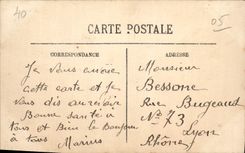 40
05
CARTE POSTALE
CORRESPONDANCE
Je vous envoie
cette carte et je
vous dis au revoir
Bonne santé a
tous et Bien le Bonjour
a tous Marius
ADRESSE
Monsieur
Bessone
Rue Bugeaud
No 73
Lyon
Rhône